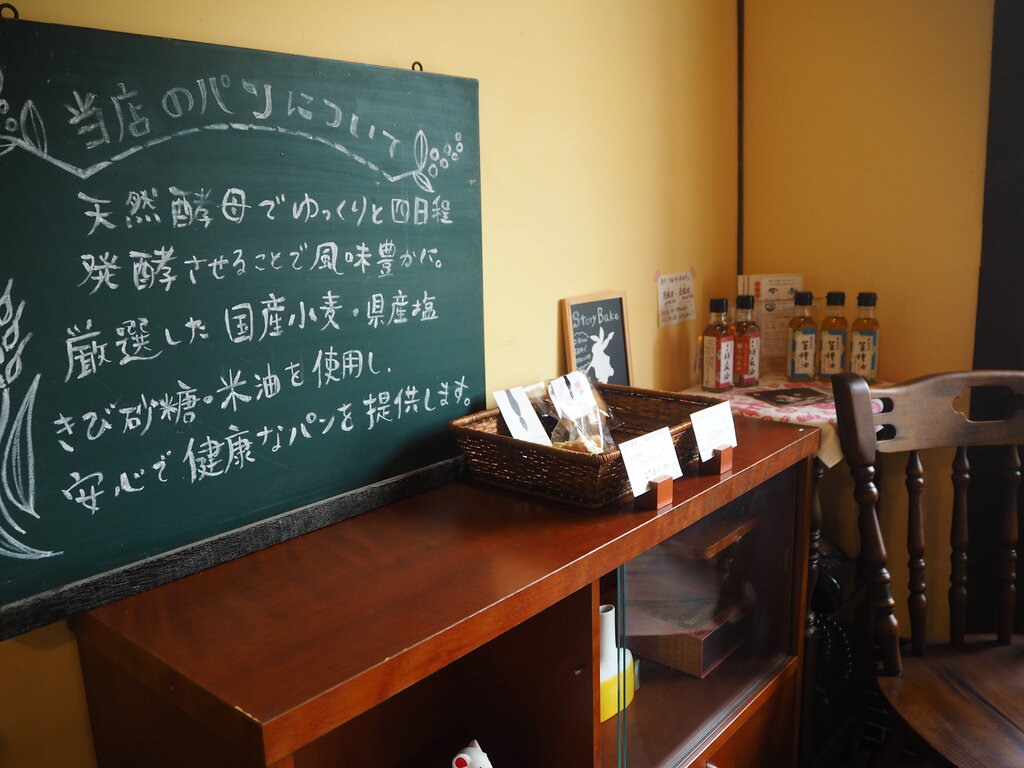 当店のパンについて
天然酵母でゆっくりと四日程
発酵させることで風味豊かに。
厳選した国産小麦・県産塩
きび砂糖・米油を使用し、
安心で健康なパンを提供します。
Story Bake